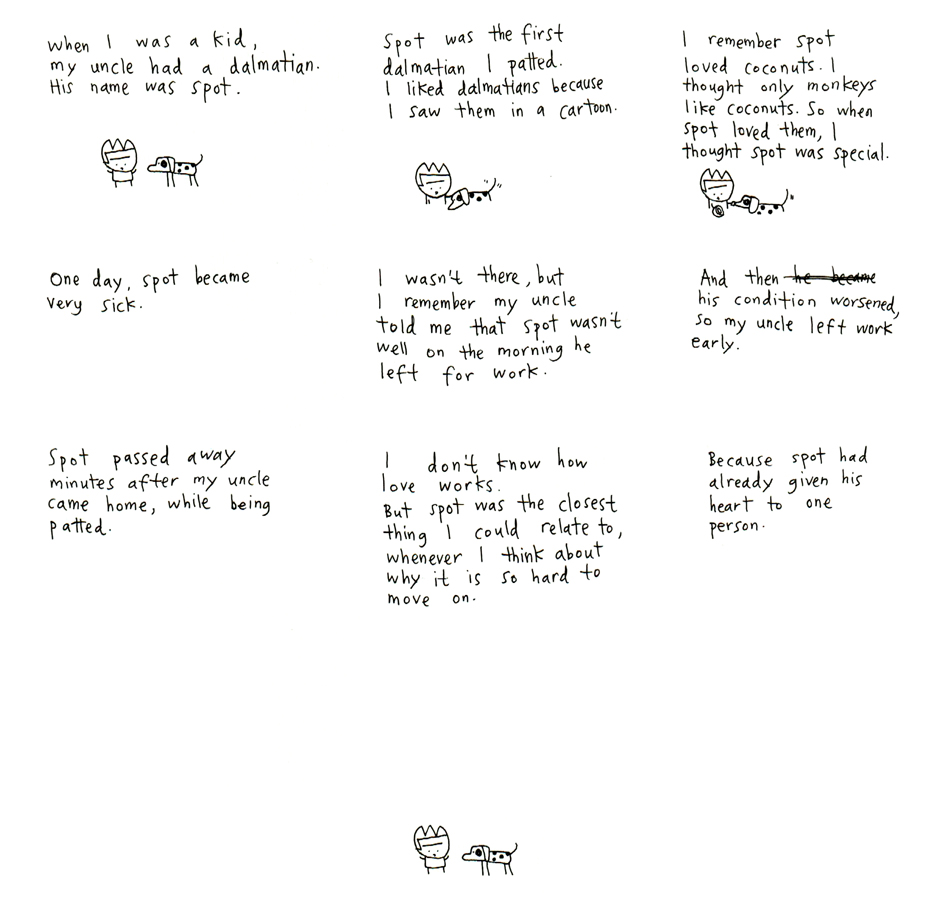 when I was a kid,
my uncle had a dalmatian.
His name was spot.
Spot was the first
dalmatian I patted.
I liked dalmatians because
I saw them in a cartoon.
I remember spot
loved coconuts. I
thought only monkeys
like coconuts. So when
spot loved them, I
thought spot was special.
One day, spot became
very sick.
I wasn't there, but
I remember my uncle
told me that spot wasn't
well on the morning he
left for work.
And then he became
his condition worsened,
so my uncle left work
early.
Spot passed away
minutes after my uncle
came home, while being
patted.
I don't know how
love works.
But spot was the closest
thing I could relate to,
whenever I think about
why it is so hard to
move on.
Because spot had
already given his
heart to one
person.